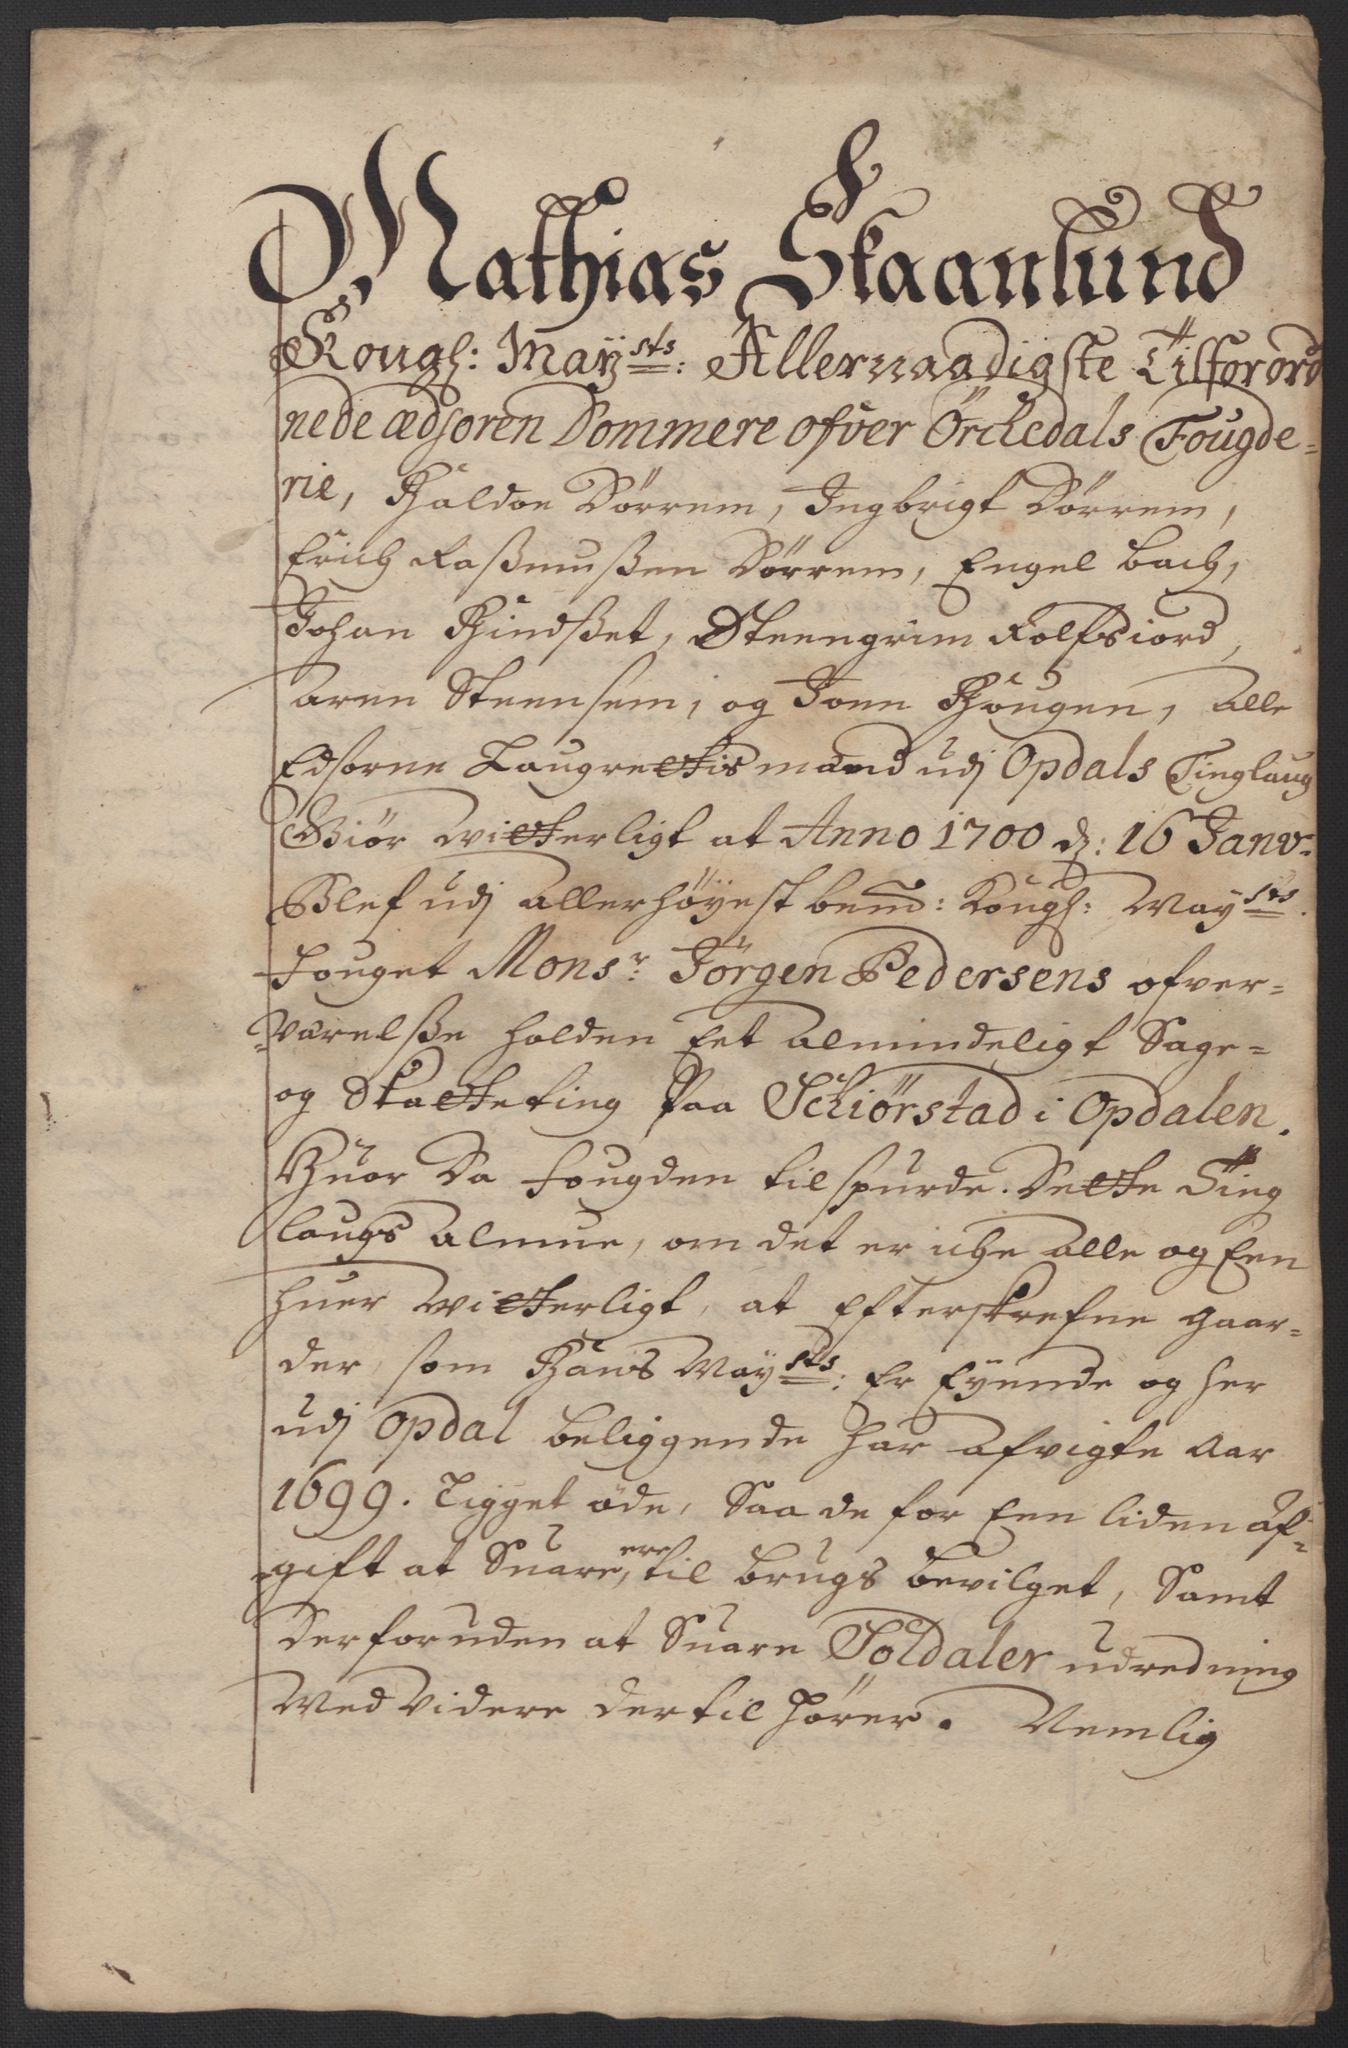 Mathias Skaanlund
Kongl: Maÿ:sts: Allernaadigste Tilforord
nede ædsoren Dommere ofver Örchedals Fougde=
rie, Haldoe Dørrem, Ingbrigt Dørrem,
Erich Rasmussen Dørrem, Engel Bach,
Johan Hindset, Steengrim Rolfsiord,
Aren Steensem, og Joen Hougen, alle
Edsorne Laugrettis mænd udj Opdals Tinglaug
Giör witterligt at Anno 1700 d: 16 Janv.
Blef udj allerhöyest bemt: Kongl: Maÿ:sts.
Fouget Monsr: Jörgen Pedersens ofver=
værelsse holden Eet almindeligt Sage=
og Skatteting paa Schiörstad i Opdalen.
Huor da Fougden tilspurde dette Ting
laugs almue, om det er iche alle og Een
huer witterligt, at Efterskrefne gaar=
der, som Hans Maÿ:sts: Er Eyende og her
udj Opdal beliggende har afvigte Aar
1699. Ligget øde, saa de for Een liden af=
gift at Suare, ere til brugs bevilget, samt
derforuden at Suare Soldater udredning
med videre dertil hører. Nemlig